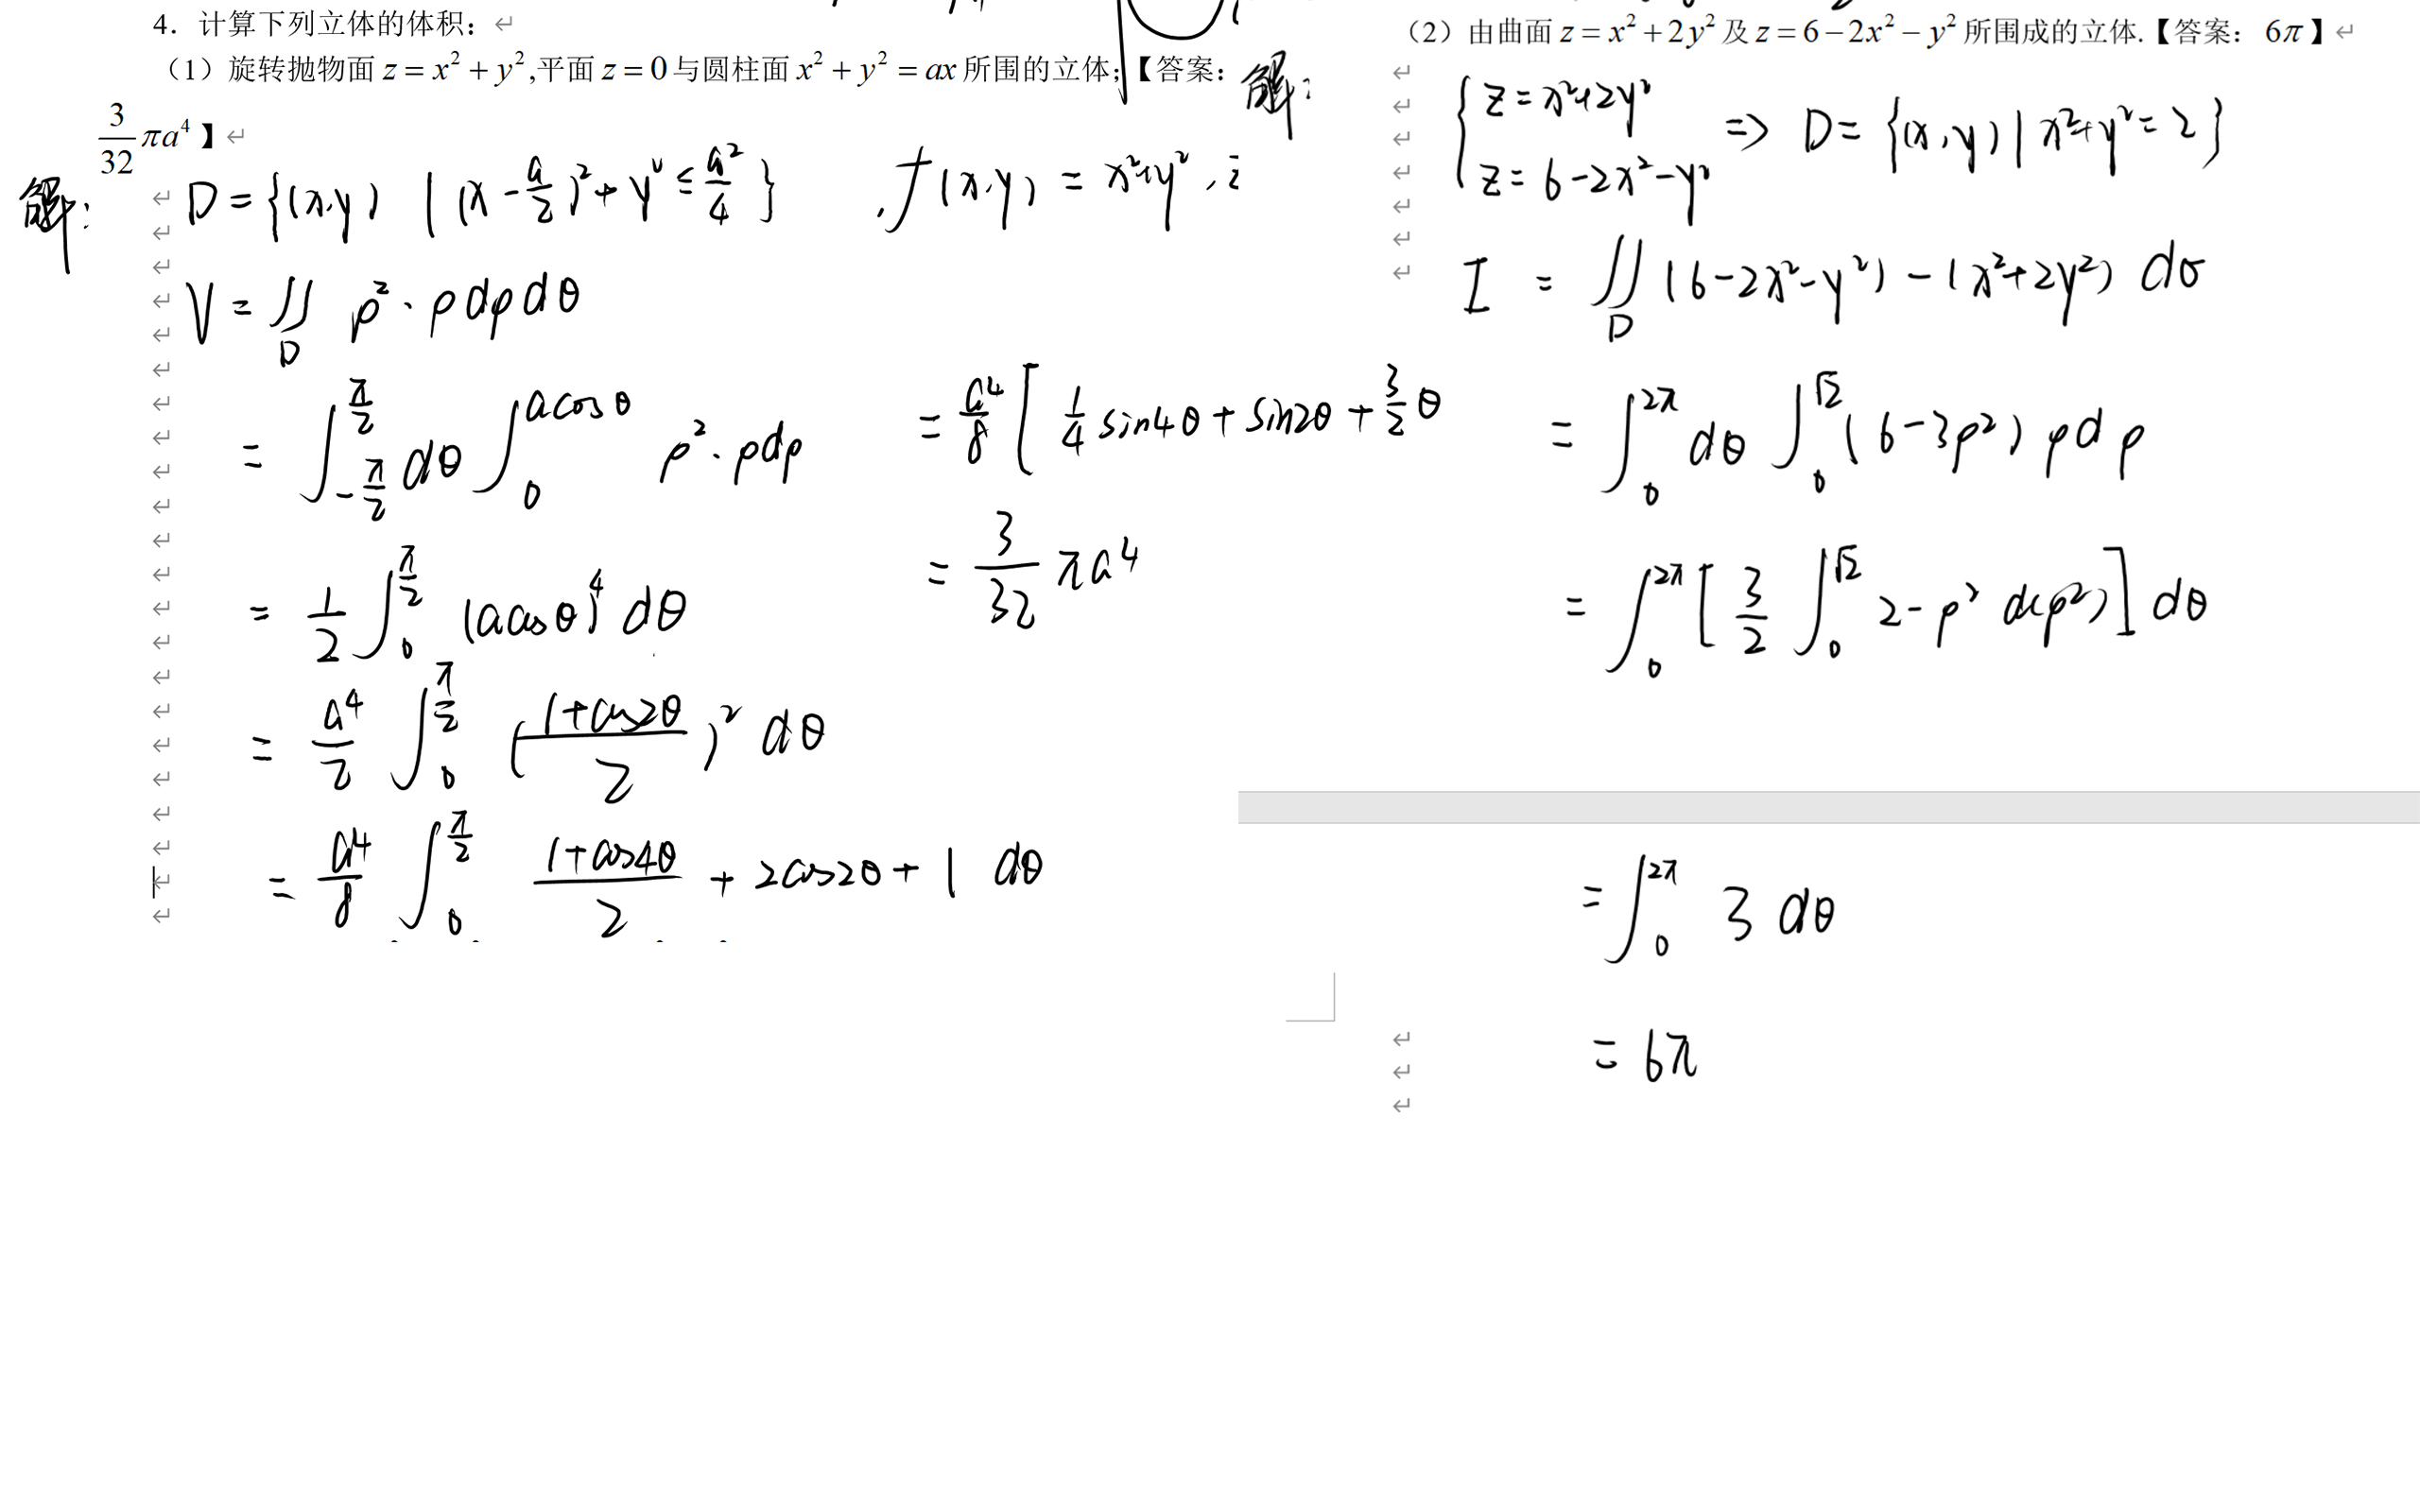 4. 计算下列立体的体积：
（1）旋转抛物面 z = x² + y²,平面 z = 0 与圆柱面 x² + y² = ax 所围的立体；【答案：
3/32 πa⁴】
解：
D = {(x,y) | (x - a/2)² + y² ≤ a²/4} , f(x,y) = x²+y² ,
V = ∬_D ρ² · ρdρdθ
= ∫_{-π/2}^{π/2} dθ ∫_0^{acosθ} ρ² · ρdρ
= 1/2 ∫_0^{π/2} (acosθ)⁴ dθ
= a⁴/2 ∫_0^{π/2} ((1+cos2θ)/2)² dθ
= a⁴/8 ∫_0^{π/2} (1+cos4θ)/2 + 2cos2θ + 1 dθ
= a⁴/8 [ 1/4 sin4θ + sin2θ + 3/2 θ
= 3/32 πa⁴
（2）由曲面 z = x² + 2y² 及 z = 6 − 2x² − y² 所围成的立体.【答案： 6π】
解：
{ z = x²+2y²
z = 6-2x²-y² => D = {(x,y) | x²+y² = 2}
I = ∬_D (6-2x²-y²) - (x²+2y²) dσ
= ∫_0^{2π} dθ ∫_0^{√2} (6-3ρ²) ρdρ
= ∫_0^{2π} [ 3/2 ∫_0^{√2} 2-ρ² d(ρ²) ] dθ
= ∫_0^{2π} 3 dθ
= 6π